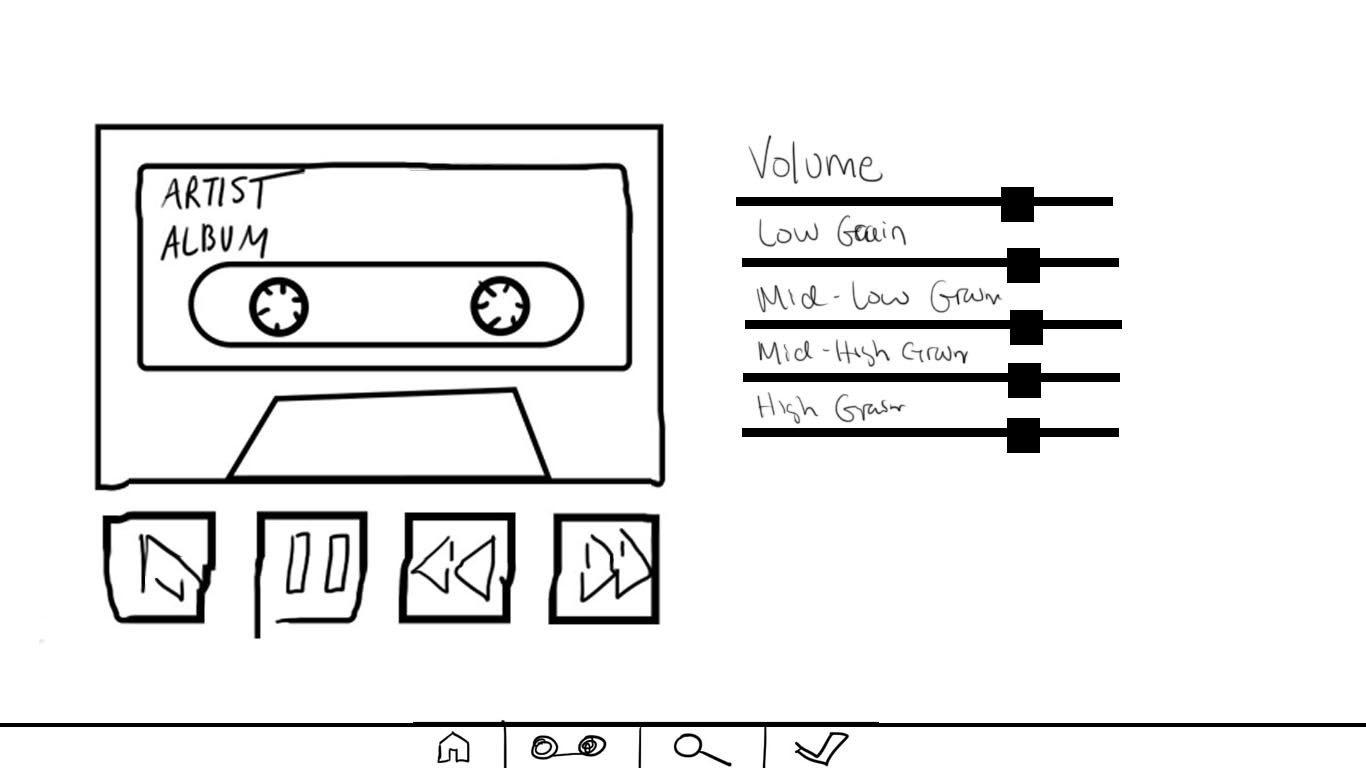 ARTIST
ALBUM
Volume
Low Gain
Mid-Low Gain
Mid-High Gain
High Gain